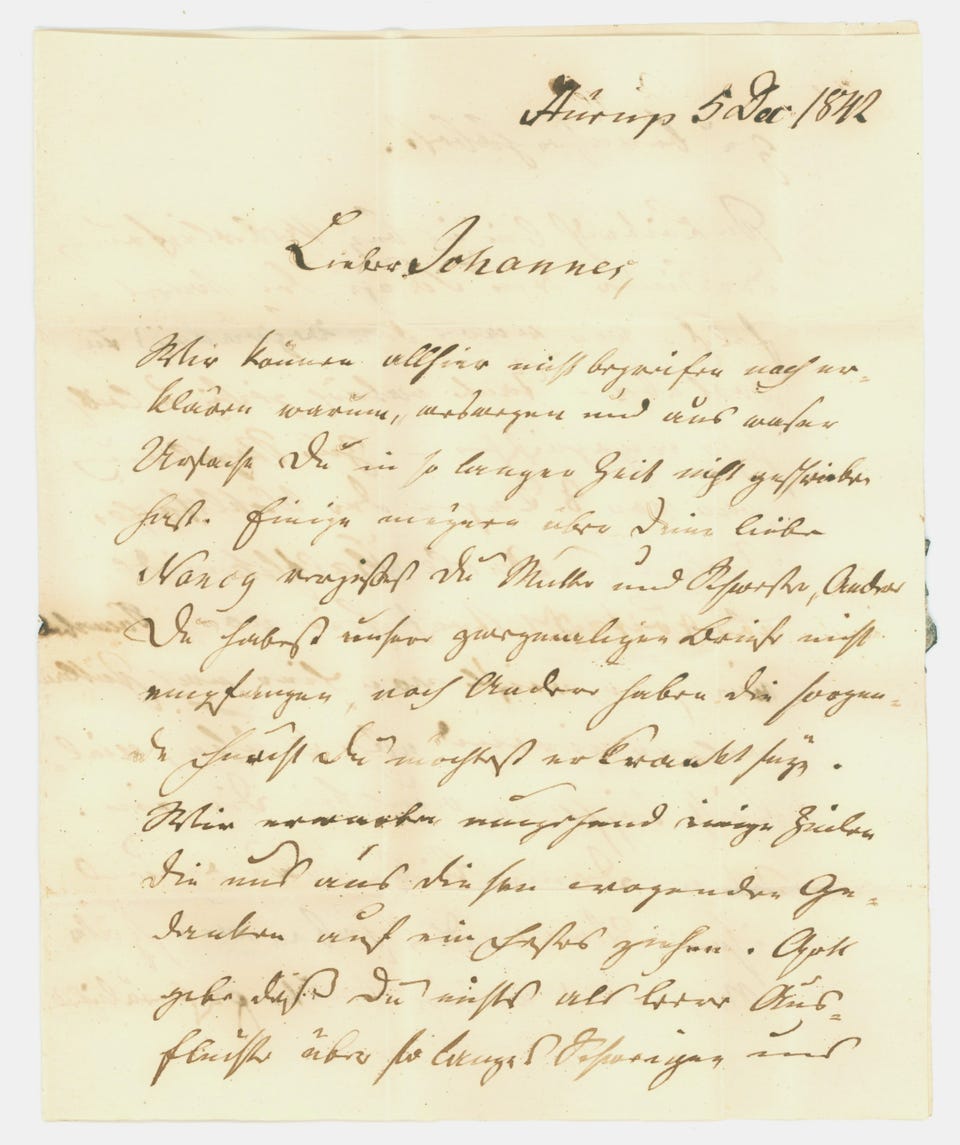 Hürup 5 Dec 1842
Lieber Johannes,
Wir können allhier nicht begreifen noch er-
klären warum, weswegen und aus waser
Ursache Du in so langer Zeit nicht geschrieben
hast. Einige meynen über Deine liebe
Nancy vergißest Du Mutter und Schwester, Andere
Du habest unsere Briefe nicht
empfangen, noch Andere haben die sorgen-
de Furcht Du möchtest erkrankt seyn.
Wir erwarten umgehend einige Zeilen
die uns aus diesen wogenden Ge-
danken auf ein Festes ziehen. Gott
gebe daß Du nichts als leere Aus-
flüchte über so langes Schweigen uns